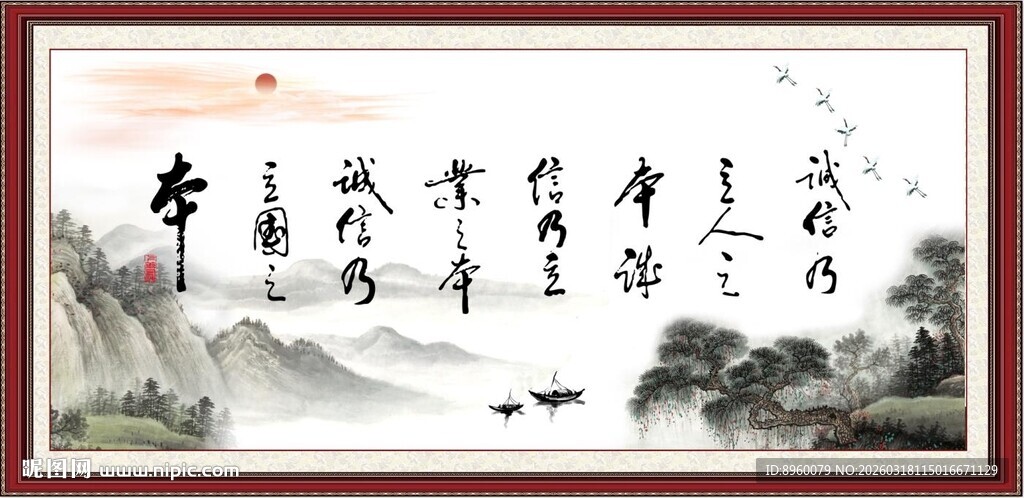 誠信乃
立人之
本誠
信乃立
業之本
誠信乃
立國之
本
昵图网 www.nipic.com
ID:8960079 NO:20260318115016671129